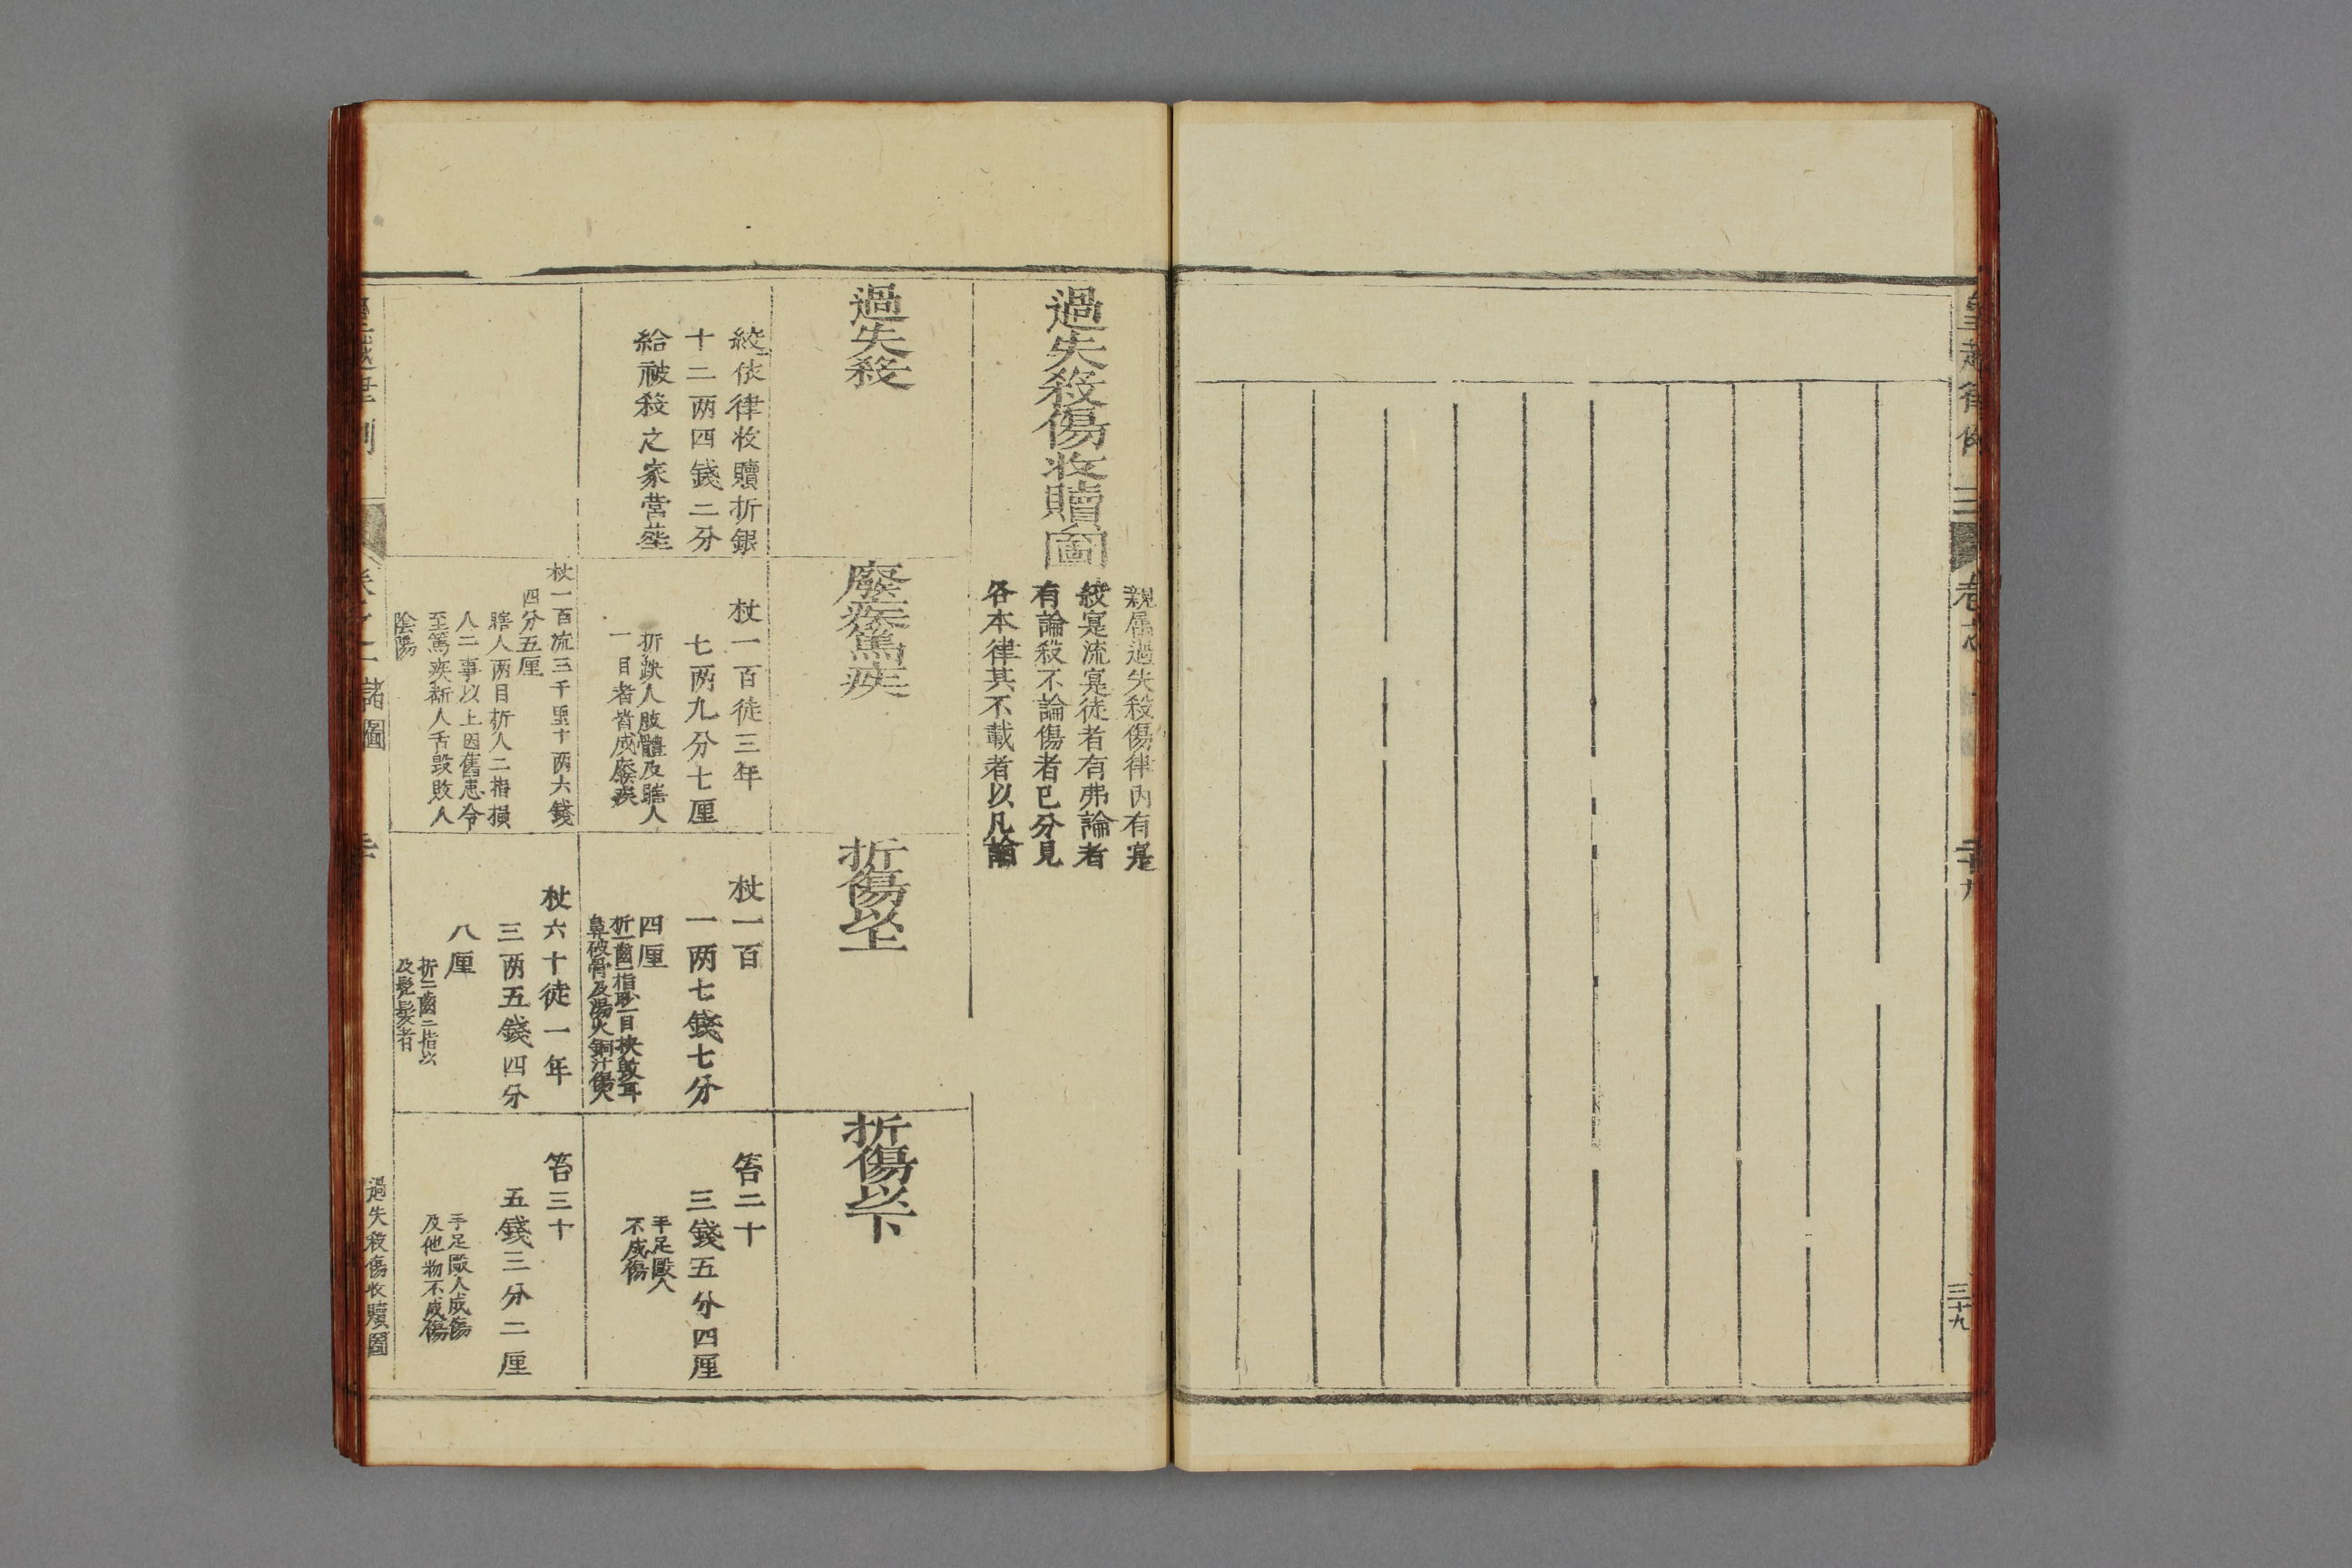 皇越律例
卷之
三十九
過失殺傷收贖圖
親属過失殺傷律內有寔
絞寔流寔徒者有弗論者
有論殺不論傷者已分見
各本律其不載者以凡論
過失殺
絞依律收贖折銀
十二两四錢二分
給被殺之家營塟
廢疾篤疾
杖一百徒三年
七两九分七厘
折跌人肢體及瞎人
一目者皆成廢疾
杖一百流三千里十两六錢
四分五厘
瞎人两目折人二指損
人二事以上因舊患令
至篤疾斷人舌毀敗人
陰陽
折傷以上
杖一百
一两七錢七分
四厘
折一齒一指眇一目抉毀耳
鼻破骨及湯火銅汁傷人
杖六十徒一年
三两五錢四分
八厘
折二齒二指以
及髡髮者
折傷以下
笞二十
三錢五分四厘
手足毆人
不成傷
笞三十
五錢三分二厘
手足毆人成傷
及他物不成傷
諸圖
過失殺傷收贖圖